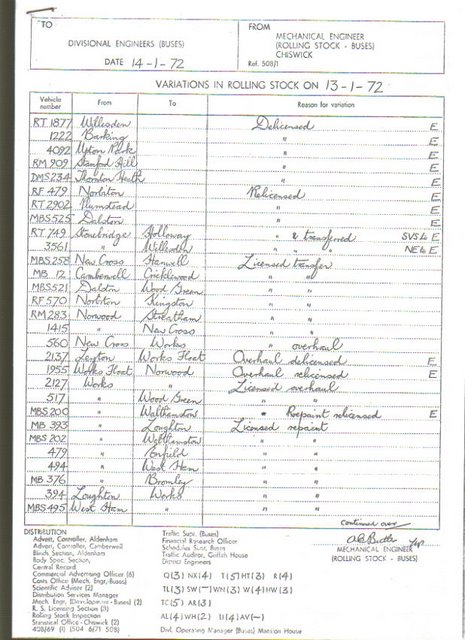 TO
DIVISIONAL ENGINEERS (BUSES)
DATE 14-1-72
FROM
MECHANICAL ENGINEER
(ROLLING STOCK - BUSES)
CHISWICK
Ref. 508/1
VARIATIONS IN ROLLING STOCK ON 13-1-72
Vehicle number From To Reason for variation
RT 1877 Willesden Delicensed E
1222 Barking " E
4092 Upton Park " E
RM 909 Stamford Hill " E
DMS 234 Thornton Heath " E
RF 479 Norbiton Relicensed E
RT 2902 Plumstead " E
MBS 525 Dalston " E
RT 749 Stonebridge Holloway " & transferred SVS to E
3561 " Willesden " " " NE to E
MBS 258 New Cross Hanwell Licensed transfer
MB 12 Camberwell Cricklewood " "
MBS 521 Dalston Wood Green " "
RF 570 Norbiton Kingston " "
RM 283 Norwood Streatham " "
1415 " New Cross " "
560 New Cross Works " overhaul
2137 Leyton Works Float Overhaul delicensed E
1955 Works Float Norwood Overhaul relicensed E
2127 Works " Licensed overhaul
517 " Wood Green " "
MBS 200 " Walthamstow " Repaint relicensed E
MB 393 " Loughton Licensed repaint
MBS 202 " Walthamstow " "
479 " Enfield " "
494 " West Ham " "
MB 376 " Bromley " "
394 Loughton Works " "
MBS 495 West Ham " " "
Continued over
MECHANICAL ENGINEER
(ROLLING STOCK - BUSES)
DISTRIBUTION
Advert, Controller, Aldenham
Advert, Controller, Camberwell
Blinds Section, Aldenham
Body Spec. Section,
Central Record
Commercial Advertising Officer (6)
Costs Office (Mech. Engr.-Buses)
Scientific Adviser (2)
Distribution Services Manager
Mech. Engr. (Development - Buses) (2)
R. S. Licensing Section (3)
Rolling Stock Inspection
Statistical Office - Chiswick (2)
428/69 (1) (504 6/71 508)
Traffic Supt. (Buses)
Financial Research Officer
Schedules Supt. Buses
Traffic Auditor, Griffith House
District Engineers
Q(3) NX(4) T(5) HT(3) R(4)
TL(3) SW(-) WN(3) W(4) HW(3)
TC(5) AR(3)
AL(4) WH(2) U(4) AV(-)
Divl. Operating Manager (Buses) Mansion House